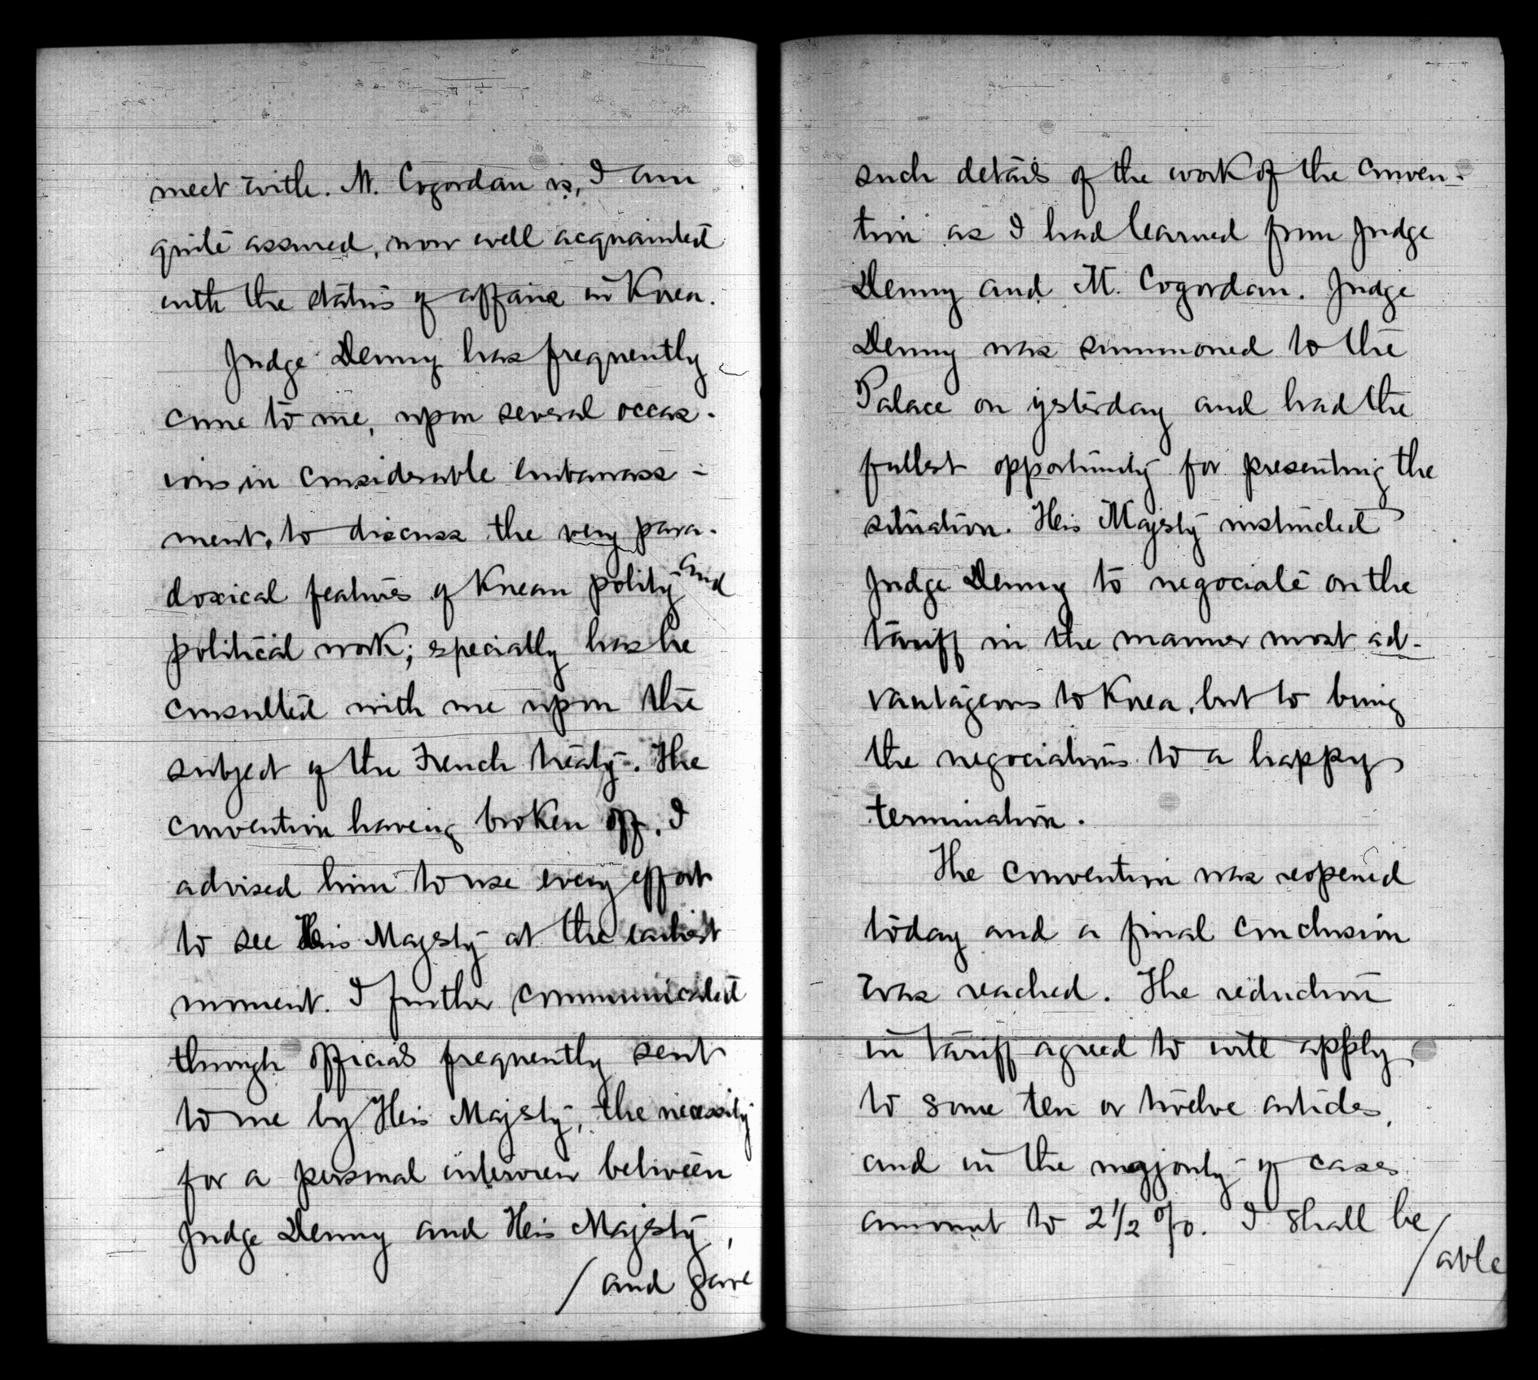 meet with. M. Cogordan is, I am
quite assured, now well acquainted
with the status of affairs in Korea.
Judge Denny has frequently
come to me, upon several occas-
ions, in considerable embarrass-
ment, to discuss the very para-
doxical features of Korean polity and
political work; specially has he
consulted with me upon the
subject of the French treaty. The
convention having broken off, I
advised him to use every effort
to see His Majesty at the earliest
moment. I further communicated
through officials frequently sent
to me by His Majesty, the necessity
for a personal interview between
Judge Denny and His Majesty,
/and gave
such details of the work of the conven-
tion as I had learned from Judge
Denny and M. Cogordan. Judge
Denny was summoned to the
Palace on yesterday and had the
fullest opportunity for presenting the
situation. His Majesty instructed
Judge Denny to negociate on the
tariff in the manner most ad-
vantageous to Korea, but to bring
the negociations to a happy
termination.
The convention was reopened
today and a final conclusion
was reached. The reduction
in tariff agreed to will apply
to some ten or twelve articles,
and in the majority of cases
amount to 2 1/2 %. I shall be
/able